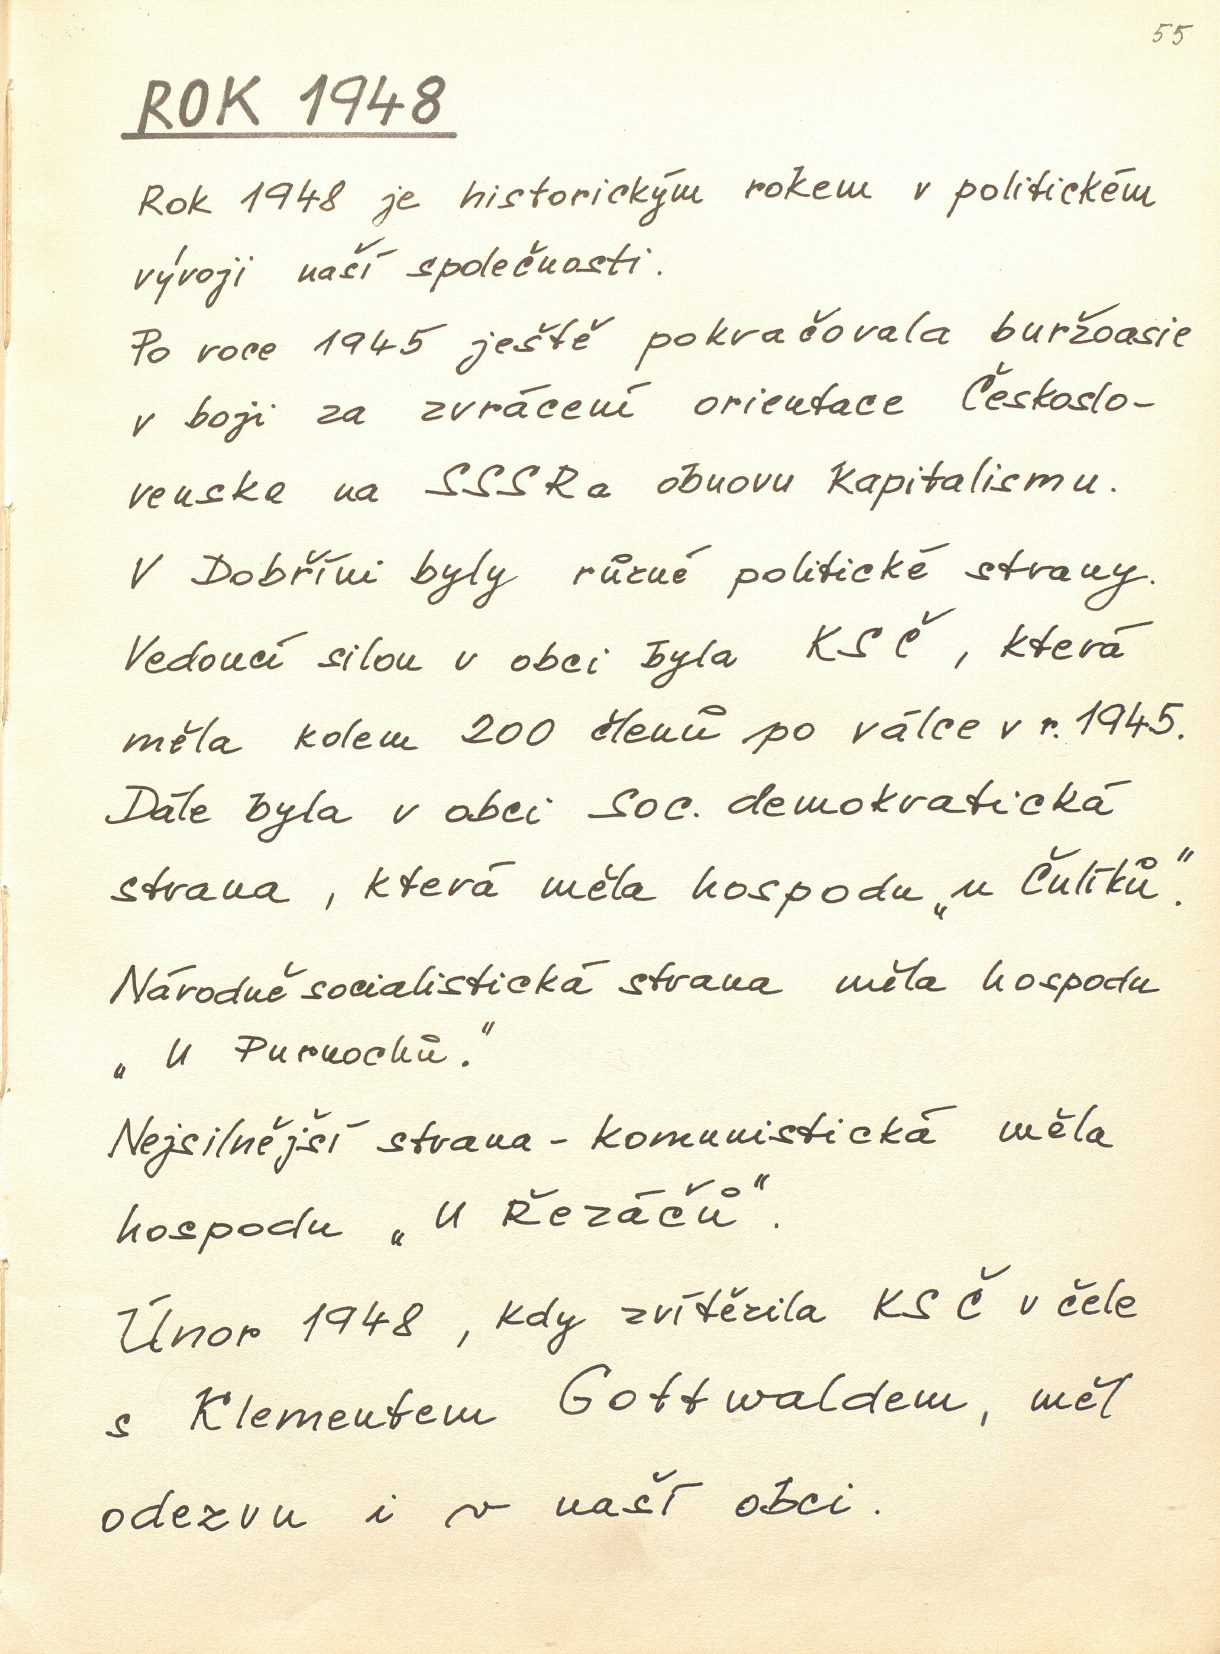 55
ROK 1948
Rok 1948 je historickým rokem v politickém
vývoji naší společnosti.
Po roce 1945 ještě pokračovala buržoasie
v boji za zvrácení orientace Českoslo-
venska na SSSR a obnovu kapitalismu.
V Dobříni byly různé politické strany.
Vedoucí silou v obci byla KSČ, která
měla kolem 200 členů po válce v r. 1945.
Dále byla v obci soc. demokratická
strana, která měla hospodu „u Čulíků".
Národně socialistická strana měla hospodu
„U Purnochů."
Nejsilnější strana - komunistická měla
hospodu „U Řezáčů".
Únor 1948, kdy zvítězila KSČ v čele
s Klementem Gottwaldem, měl
odezvu i v naší obci.